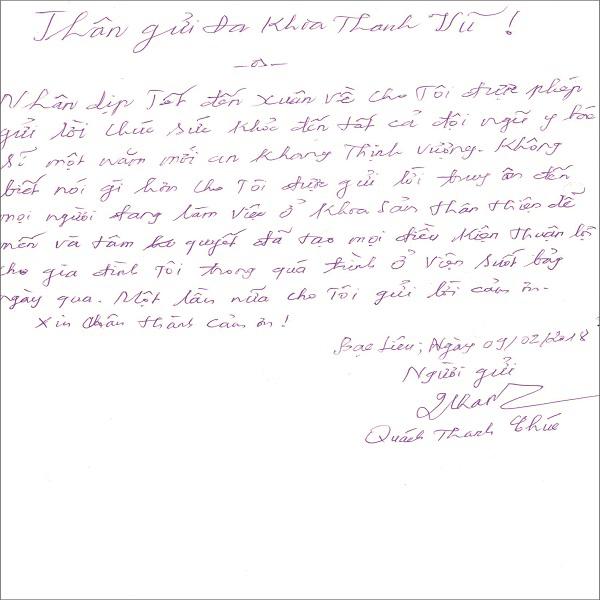 Thân gửi Đa Khoa Thanh Vũ !
Nhân dịp Tết đến xuân về cho Tôi được phép
gửi lời chúc sức khỏe đến tất cả đội ngũ y bác
sĩ một năm mới an khang Thịnh vượng. Không
biết nói gì hơn cho Tôi được gửi lời truy ân đến
mọi người đang làm việc ở Khoa Sản thân thiện dễ
mến và tâm quyết đã tạo mọi điều kiện thuận lợi
cho gia đình Tôi trong quá trình ở viện suốt bảy
ngày qua. Một lần nữa cho Tôi gửi lời cảm ơn.
Xin chân thành cảm ơn !
Bạc Liêu, Ngày 09/02/2018
Người gửi
Quách Thanh Chúc